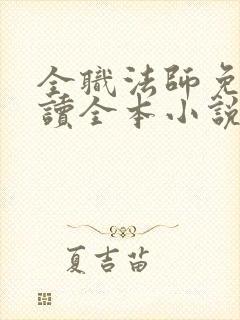 全職法師免
讀全本小說
夏吉苗